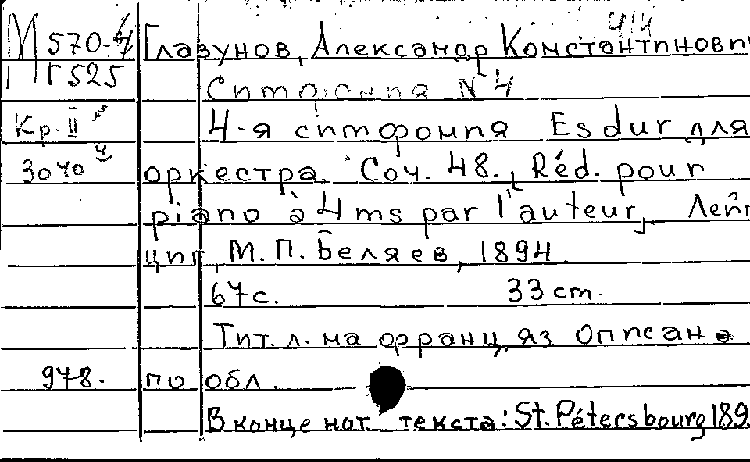 414
М 570-4 Глазунов, Александр Константинович
Г525
Симфония №4
Кр. II 4-я симфония Es dur для
3040 оркестра. Соч. 48., Réd. pour
piano à 4 ms par l'auteur, Лейп
циг, М.П. Беляев, 1894.
67 с. 33 cm.
Тит. л. на франц. яз Описано
978. по обл.
В конце нот. текста: St. Pétersbourg 189